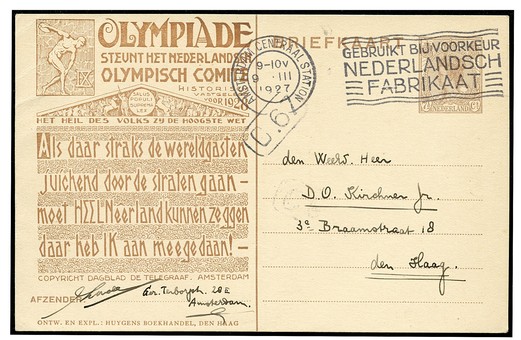 OLYMPIADE
STEUNT HET NEDERLANDSCH
OLYMPISCH COMITÉ
HISTORISCH
VASTGEL
VOOR 1928
IX
SALUS
POPULI
SUPREMA
LEX
HET HEIL DES VOLKS ZY DE HOOGSTE WET
Als daar straks de wereldgasten
juichend door de straten gaan —
moet HEEL Neerland kunnen zeggen
daar heb IK aan meegedaan! —
COPYRIGHT DAGBLAD DE TELEGRAAF. AMSTERDAM
AFZENDER:
Ger. Terborgstr. 20 E
Amsterdam.
ONTW. EN EXPL.: HUYGENS BOEKHANDEL, DEN HAAG
BRIEFKAART
AMSTERDAM CENTRAAL STATION
9-10V
9 III
1927
C.67
GEBRUIKT BIJ VOORKEUR
NEDERLANDSCH
FABRIKAAT
NEDERLAND
den Weled. Heer
D.O. Kirchner Jr.
3e Braamstraat 18
den Haag.